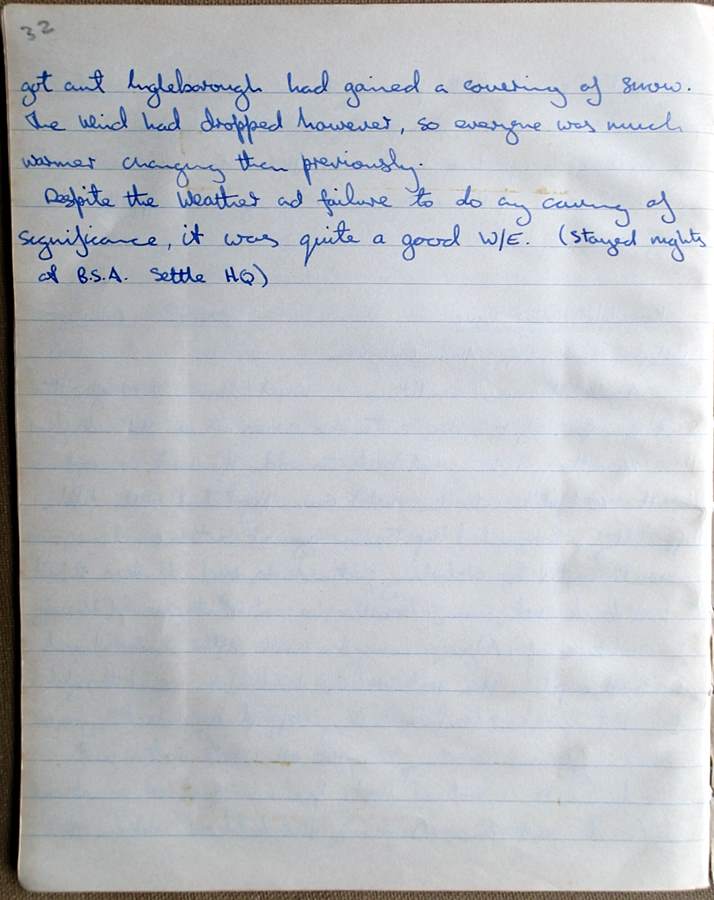 32
got out Ingleborough had gained a covering of snow.
The wind had dropped however, so everyone was much
warmer changing than previously.
Despite the weather ad failure to do any caving of
significance, it was quite a good W/E. (Stayed nights
at B.S.A. Settle HQ)